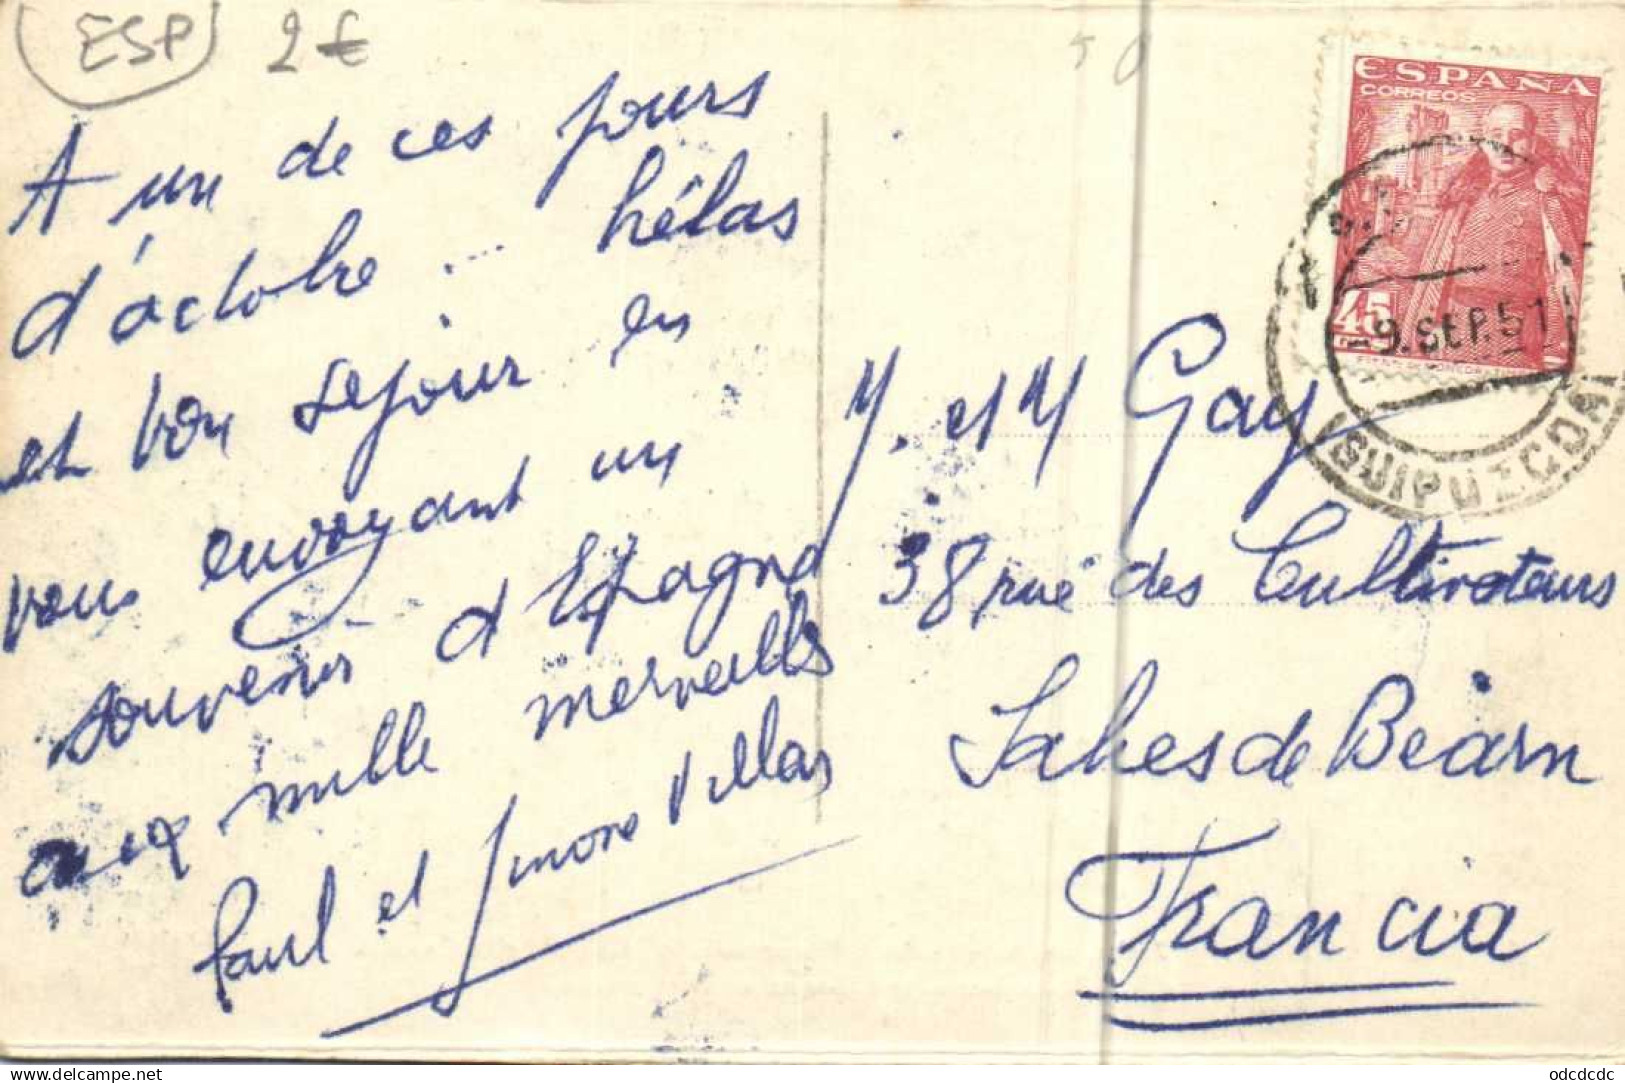 ESP 2€
A un de ces jours
d'octobre ... hélas
et bon séjour en
vous envoyant un
souvenir d'Espagne
aux mille merveilles
Paul et Simone Villas
ESPAÑA
CORREOS
45
-9.SEP.51
GUIPUZCOA
M. et M Gay
38 rue des Cultivateurs
Salies de Béarn
Francia
Delcampe.net
odcdcdc